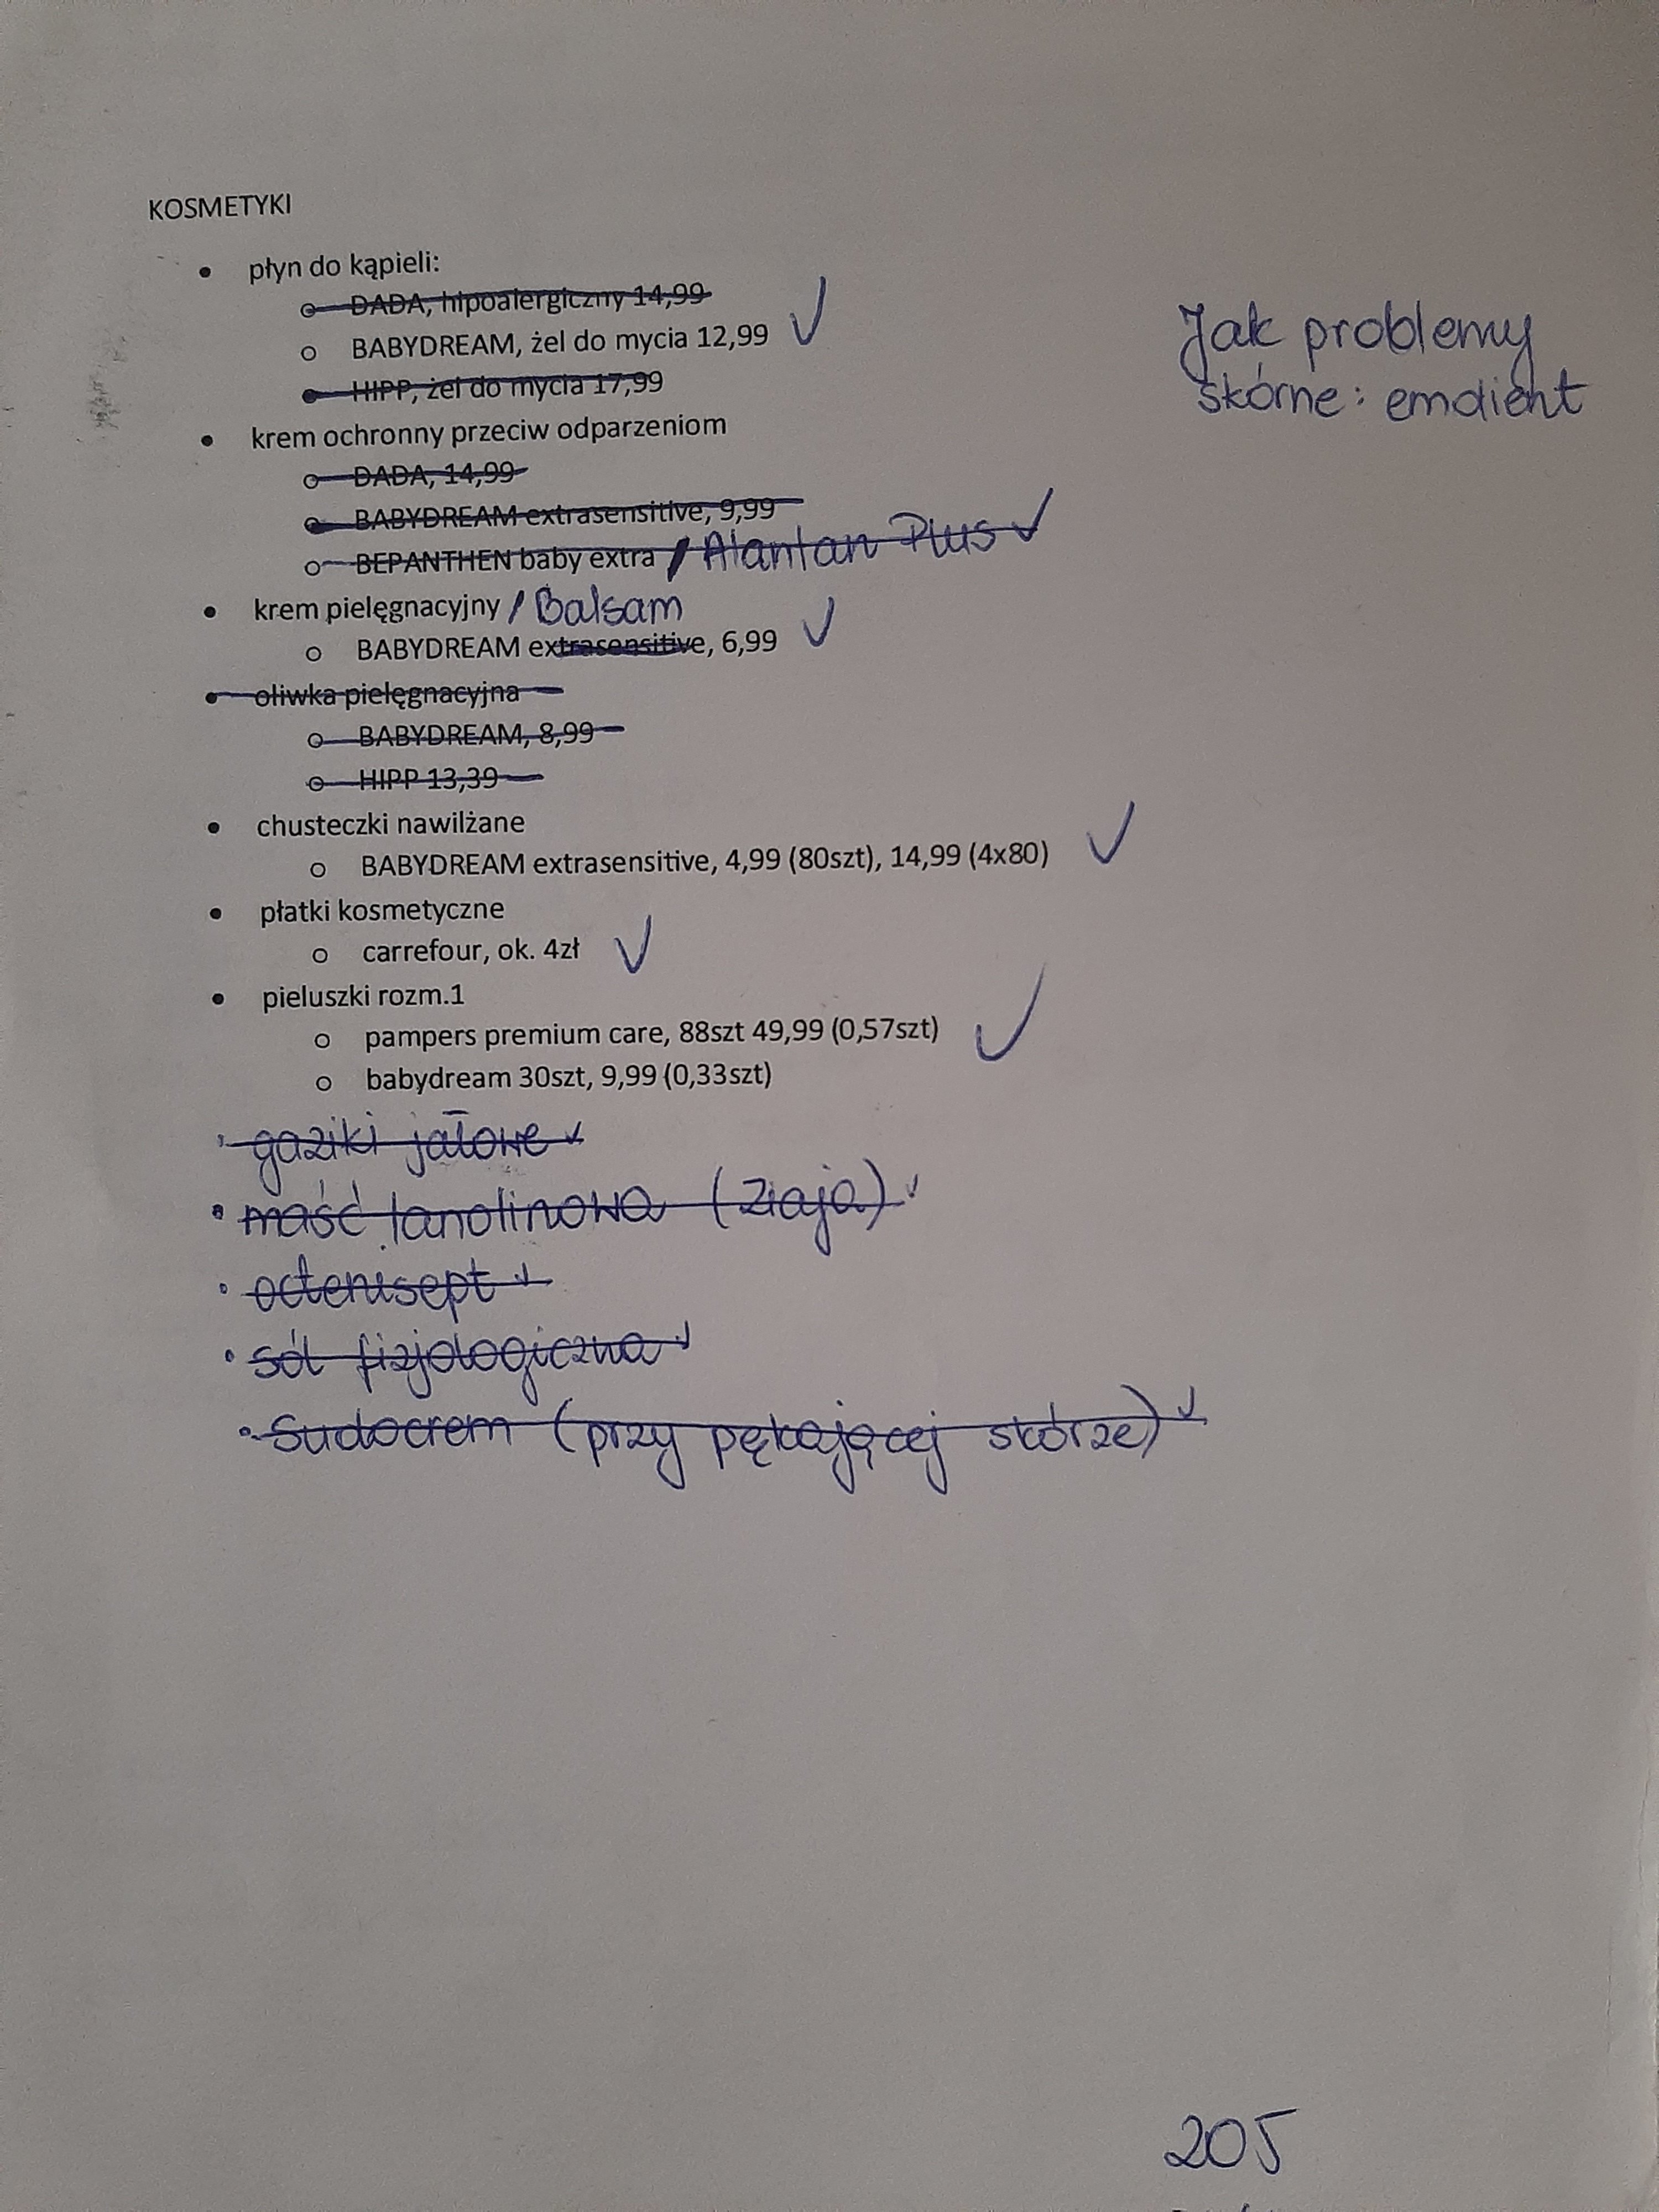 KOSMETYKI
• płyn do kąpieli:
o DADA, hipoalergiczny 14,99
o BABYDREAM, żel do mycia 12,99 ✓
o HIPP, żel do mycia 17,99
Jak problemy
skórne: emolient
• krem ochronny przeciw odparzeniom
o DADA, 14,99
o BABYDREAM extrasensitive, 9,99
o BEPANTHEN baby extra / Alantan Plus ✓
• krem pielęgnacyjny / Balsam
o BABYDREAM extrasensitive, 6,99 ✓
• oliwka pielęgnacyjna
o BABYDREAM, 8,99
o HIPP 13,39
• chusteczki nawilżane
o BABYDREAM extrasensitive, 4,99 (80szt), 14,99 (4x80) ✓
• płatki kosmetyczne
o carrefour, ok. 4zł ✓
• pieluszki rozm.1
o pampers premium care, 88szt 49,99 (0,57szt) ✓
o babydream 30szt, 9,99 (0,33szt)
• gaziki jałowe ✓
• maść lanolinowa (Ziaja) ✓
• octenisept ✓
• sól fizjologiczna ✓
• Sudocrem (przy pękającej skórze) ✓
205